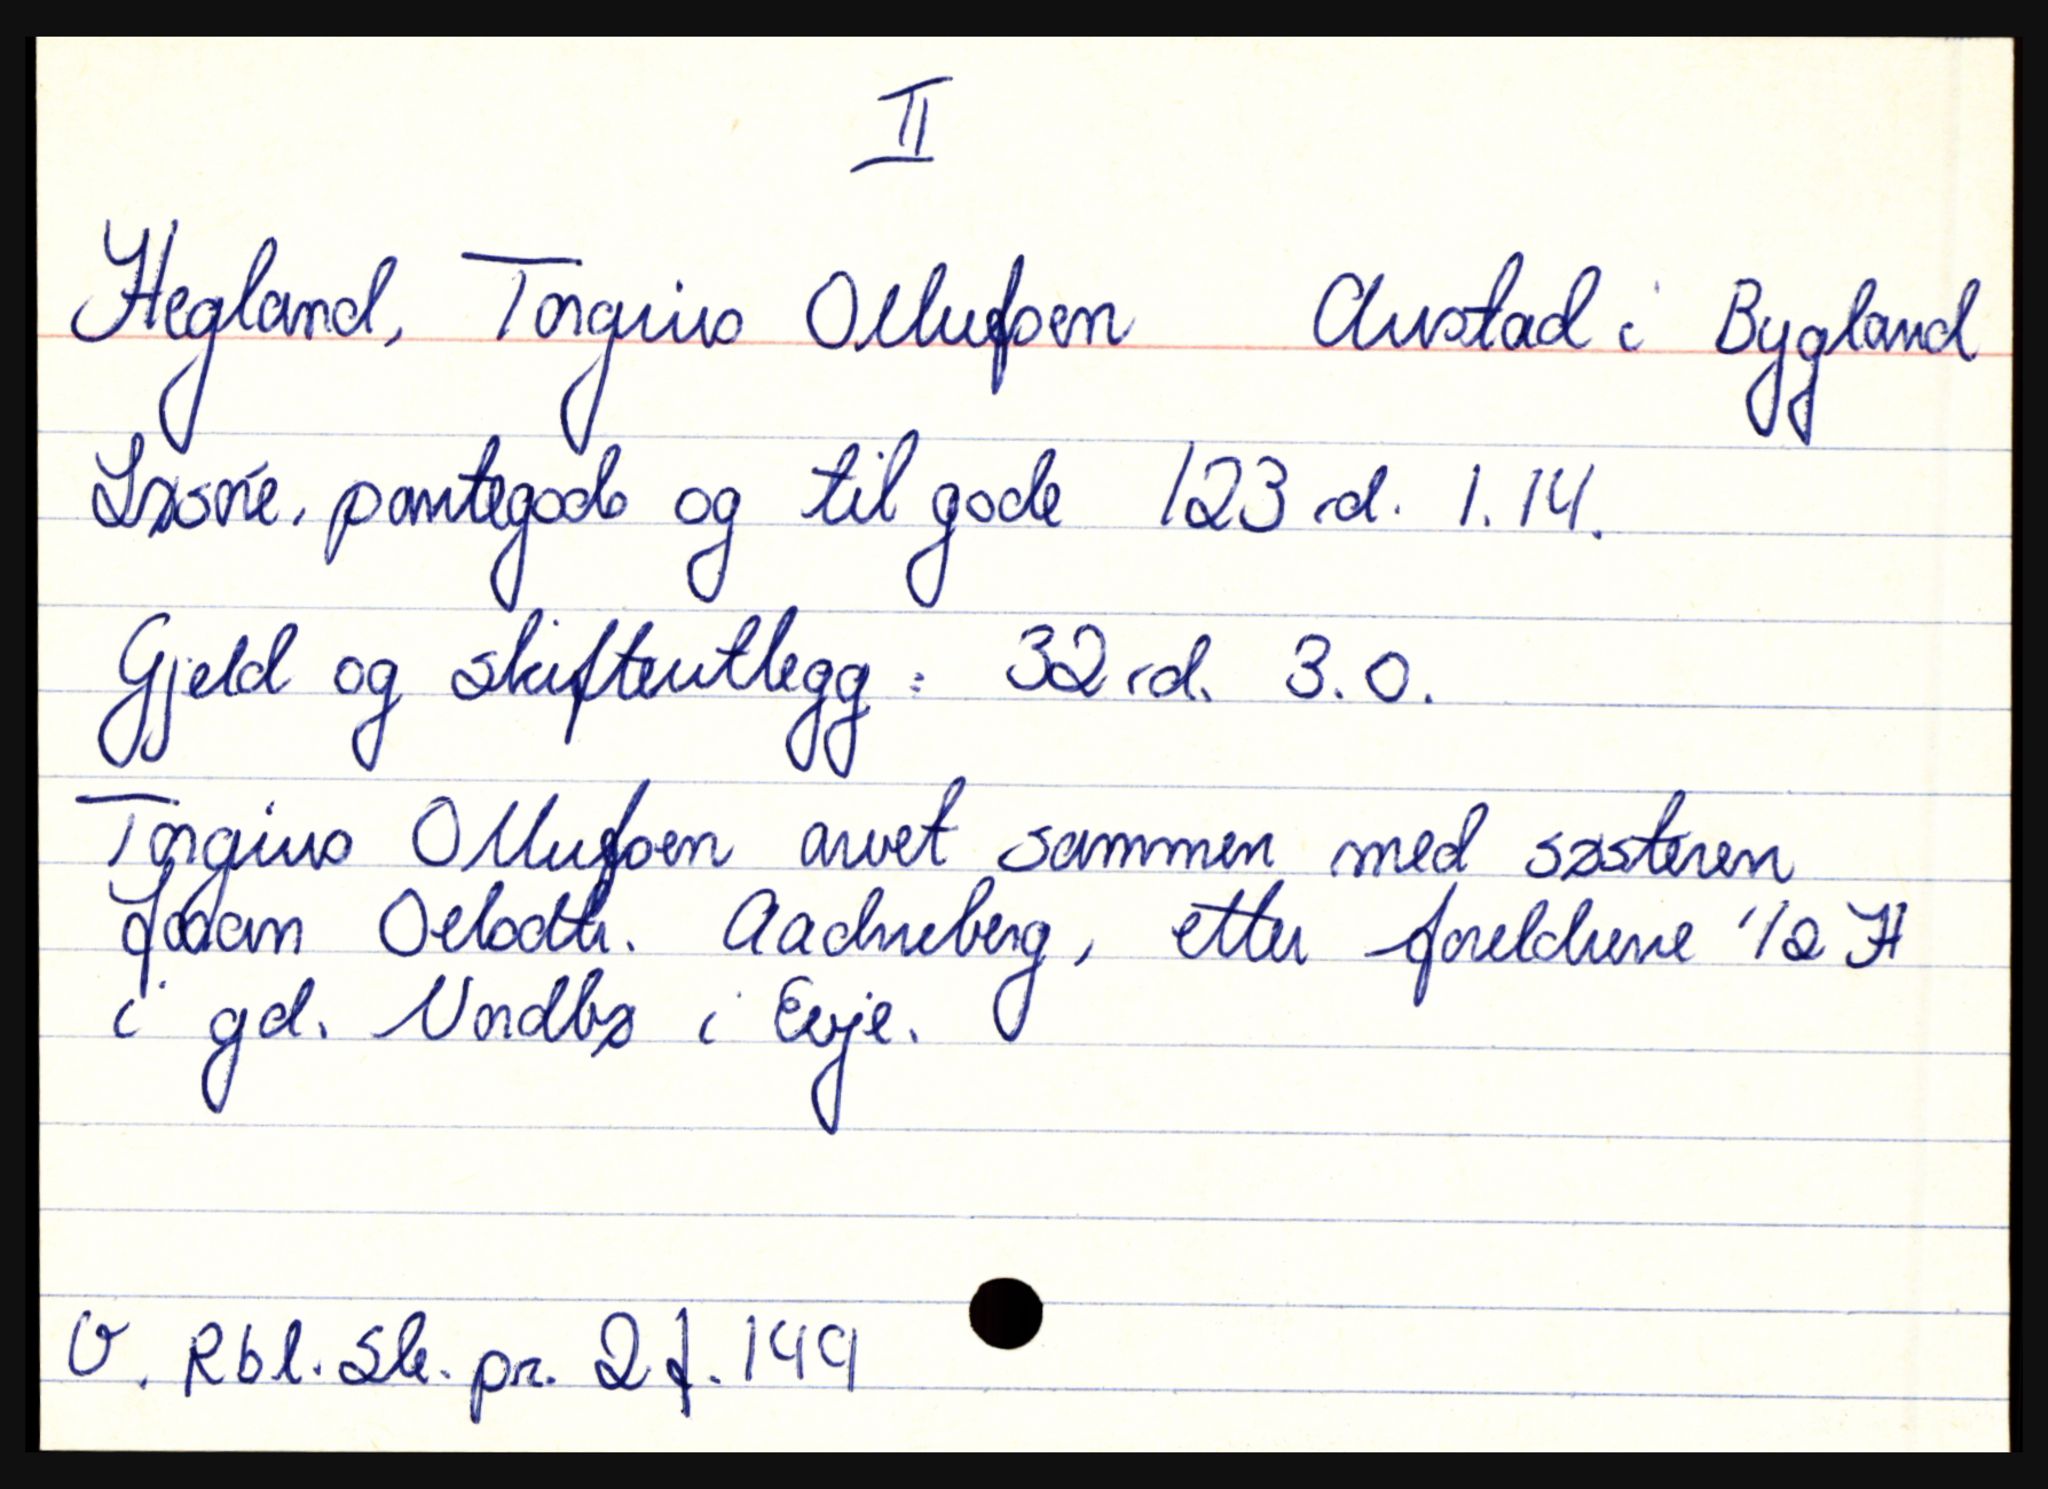 II
Hegland, Torgius Ollufsen Austad i Bygland
Løsøre, pantegods og til gode 123 rd. 1. 14.
Gjeld og skifteutlegg: 32 rd. 3. 0.
Torgius Ollufsen arvet sammen med søsteren
Joran Oelsdtr. Aadneberg, etter foreldrene 1/2 H
i gd. Nordbø i Evje.
V. Rbl. Sk. pr. 2 f. 149